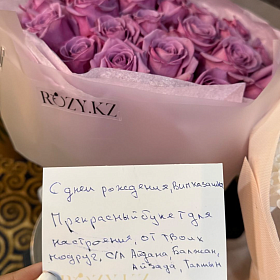 RÖZY.KZ
С днем рождения, Випказашка
Прекрасный букет для
настроения, от твоих
подруг, С/Л Аружана, Балжан,
Айзада, Талшин